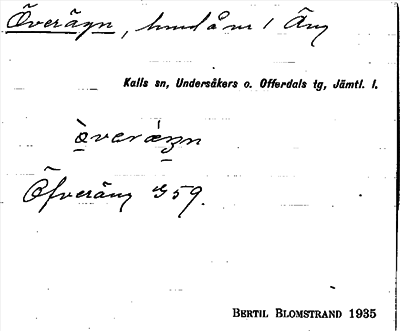 Överäng, hmd å nr 1 Äng
Kalls sn, Undersåkers o. Offerdals tg, Jämtl. l.
Öfveräng G59.
BERTIL BLOMSTRAND 1935